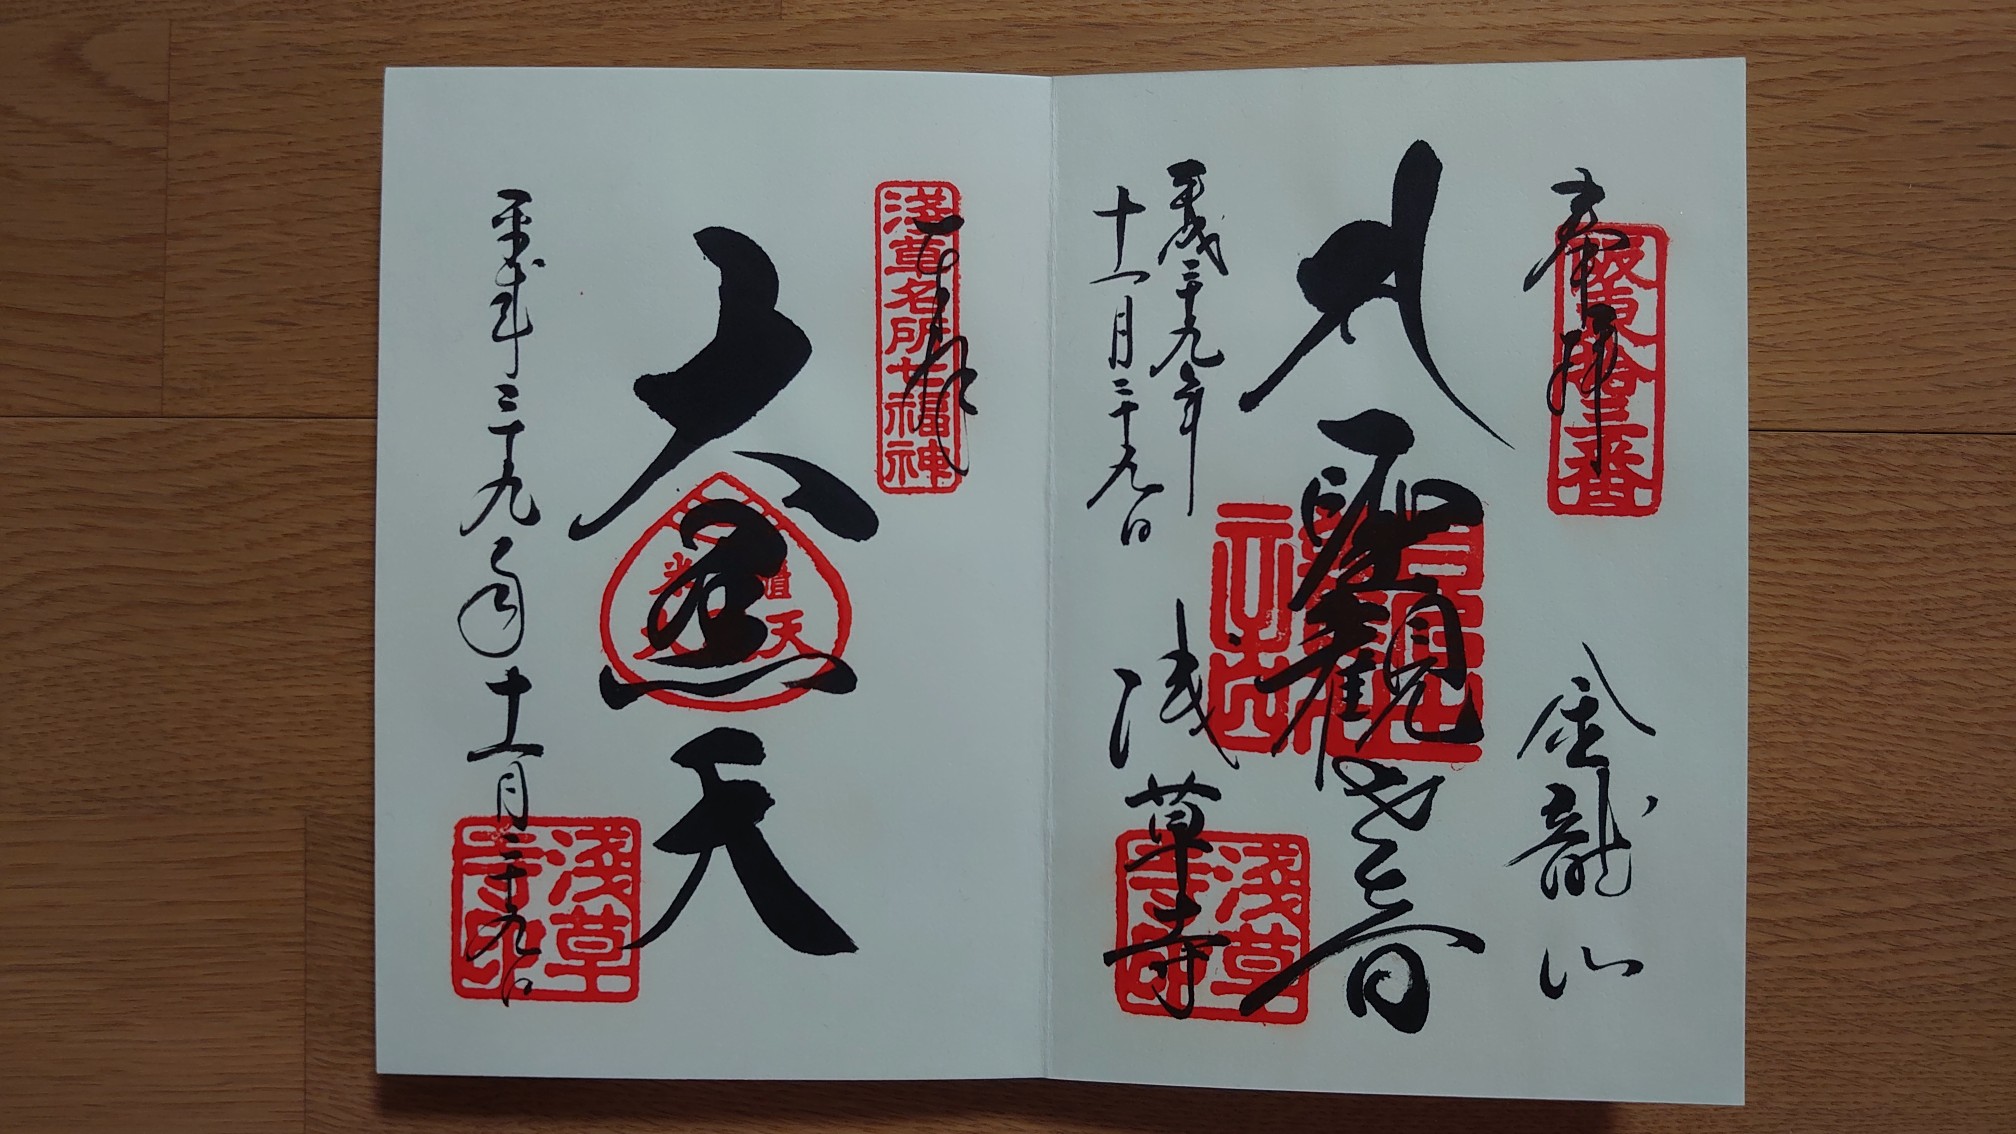 奉拝
坂東拾三番
金龍山
聖観世音
平成二十九年
十一月二十九日
浅草寺
淺草寺印
奉拝
淺草名所七福神
大黒天
平成年二十九年十一月二十九日
淺草寺印